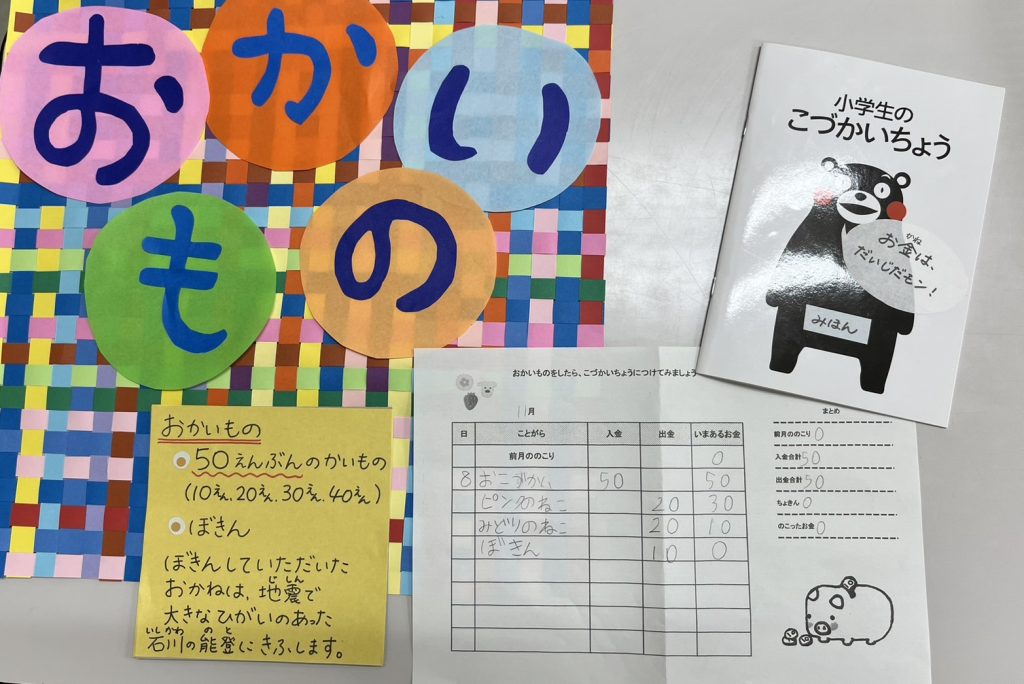 おかい
もの
小学生の
こづかいちょう
かね
お金は、
だいじだモン!
みほん
おかいもの
50えんぶんのかいもの
(10えん.20えん.30えん.40えん)
ぼきん
ぼきんしていただいた
おかねは、地震で
じしん
大きなひがいのあった
いしかわ のと
石川の能登にきふします。
おかいものをしたら、こづかいちょうにつけてみましょう
11月
日 ことがら 入金 出金 いまあるお金
前月ののこり 0
8 おこづかい 50 50
ピンクのねこ 20 30
みどりのねこ 20 10
ぼきん 10 0
まとめ
前月ののこり 0
入金合計 50
出金合計 50
ちょきん 0
のこったお金 0